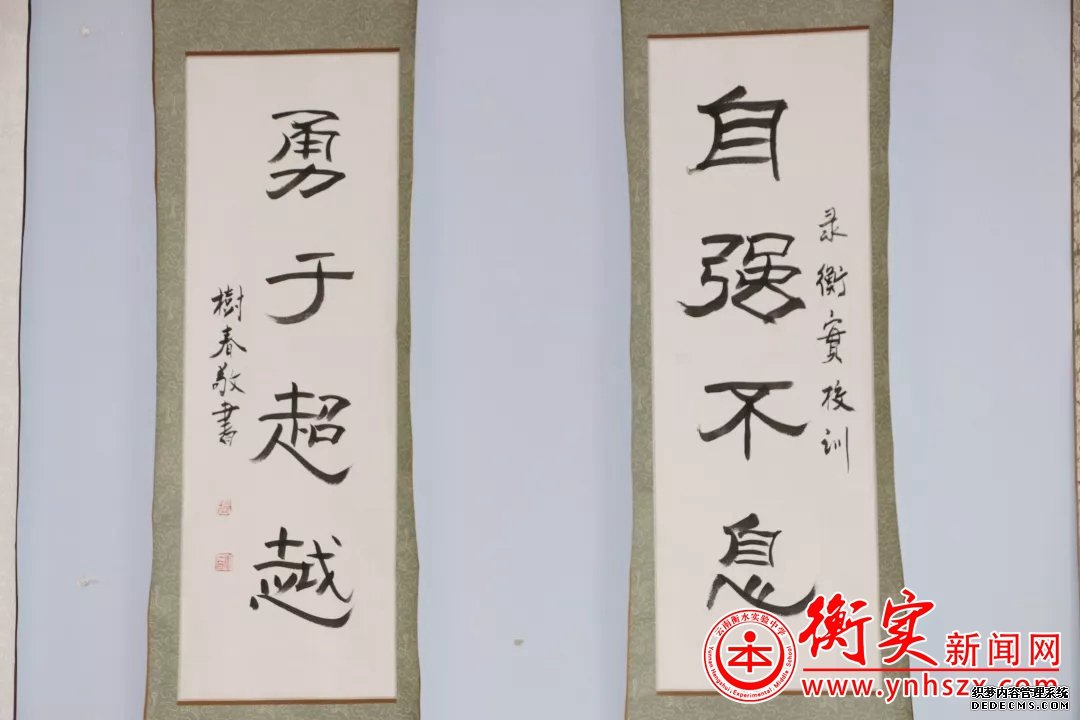 自强不息
录衡實校训
勇于超越
樹春敬書
云南衡水实验中学
Yunnan Hengshui Experimental Middle School
本
衡实新闻网
www.ynhszx.com
织梦内容管理系统
DEDECMS.COM